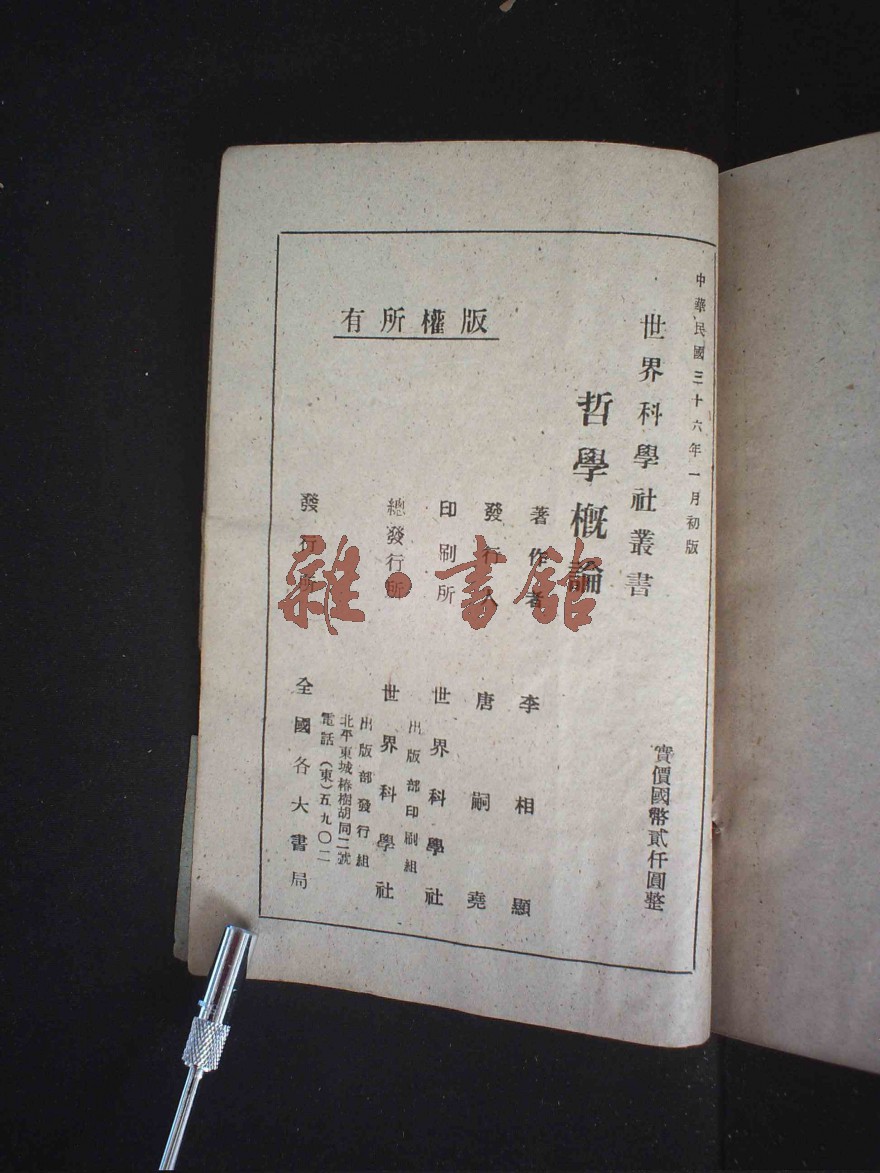 中華民國三十六年一月初版
世界科學社叢書
實價國幣貳仟圓整
哲學概論
著作者 李相顯
發行人 唐嗣堯
印刷所 世界科學社
出版部印刷組
總發行所 世界科學社
出版部發行組
北平東城椿樹胡同二號
電話(東)五九〇二
發行所 全國各大書局
版權所有
雜·書館